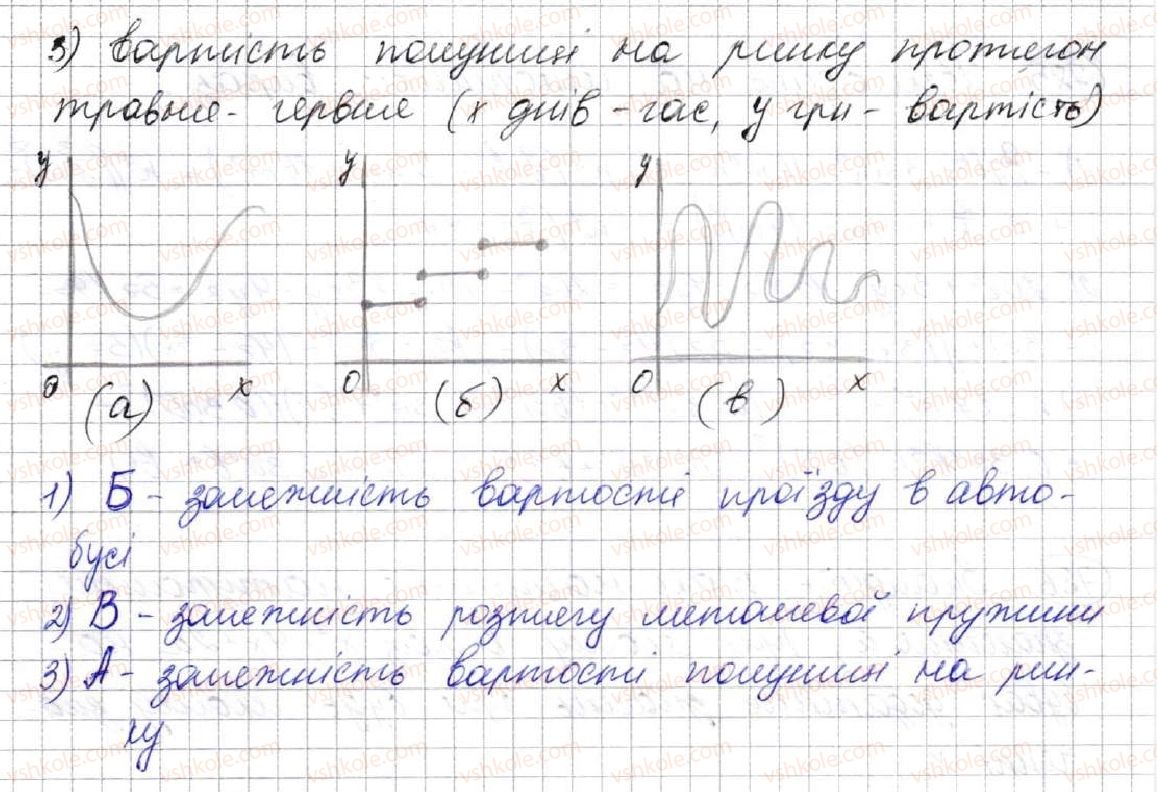 3) вартість полуниці на ринку протягом
травня - червня (x днів - час, y грн - вартість)
y y y
0 x 0 x 0 x
(а) (б) (в)
1) Б - залежність вартості проїзду в авто-
бусі
2) В - залежність розтягу металевої пружини
3) А - залежність вартості полуниці на рин-
ку
vshkole.com